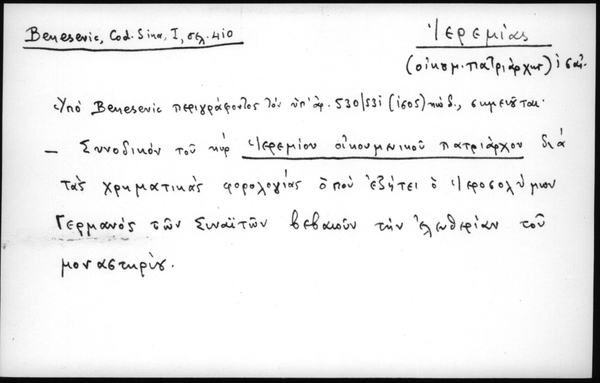 Benesevic, Cod. Sina, I, σελ. 410
Ἱερεμίας
(οἰκουμ. πατριάρχης)
Ὑπὸ Benesevic περιγράφοντος τὸν ὑπ' ἀρ. 530/531 (1505) κώδ., σημειοῦται·
— Συνοδικόν τοῦ κύρ Ἱερεμίου οἰκουμενικοῦ πατριάρχου διά
τάς χρηματικάς φορολογίας ὁποὺ ἐζήτει ὁ Ἱεροσολύμων
Γερμανός τῶν Σιναϊτῶν βεβαιοῦν τὴν ἐλευθερίαν τοῦ
μοναστηρίου.